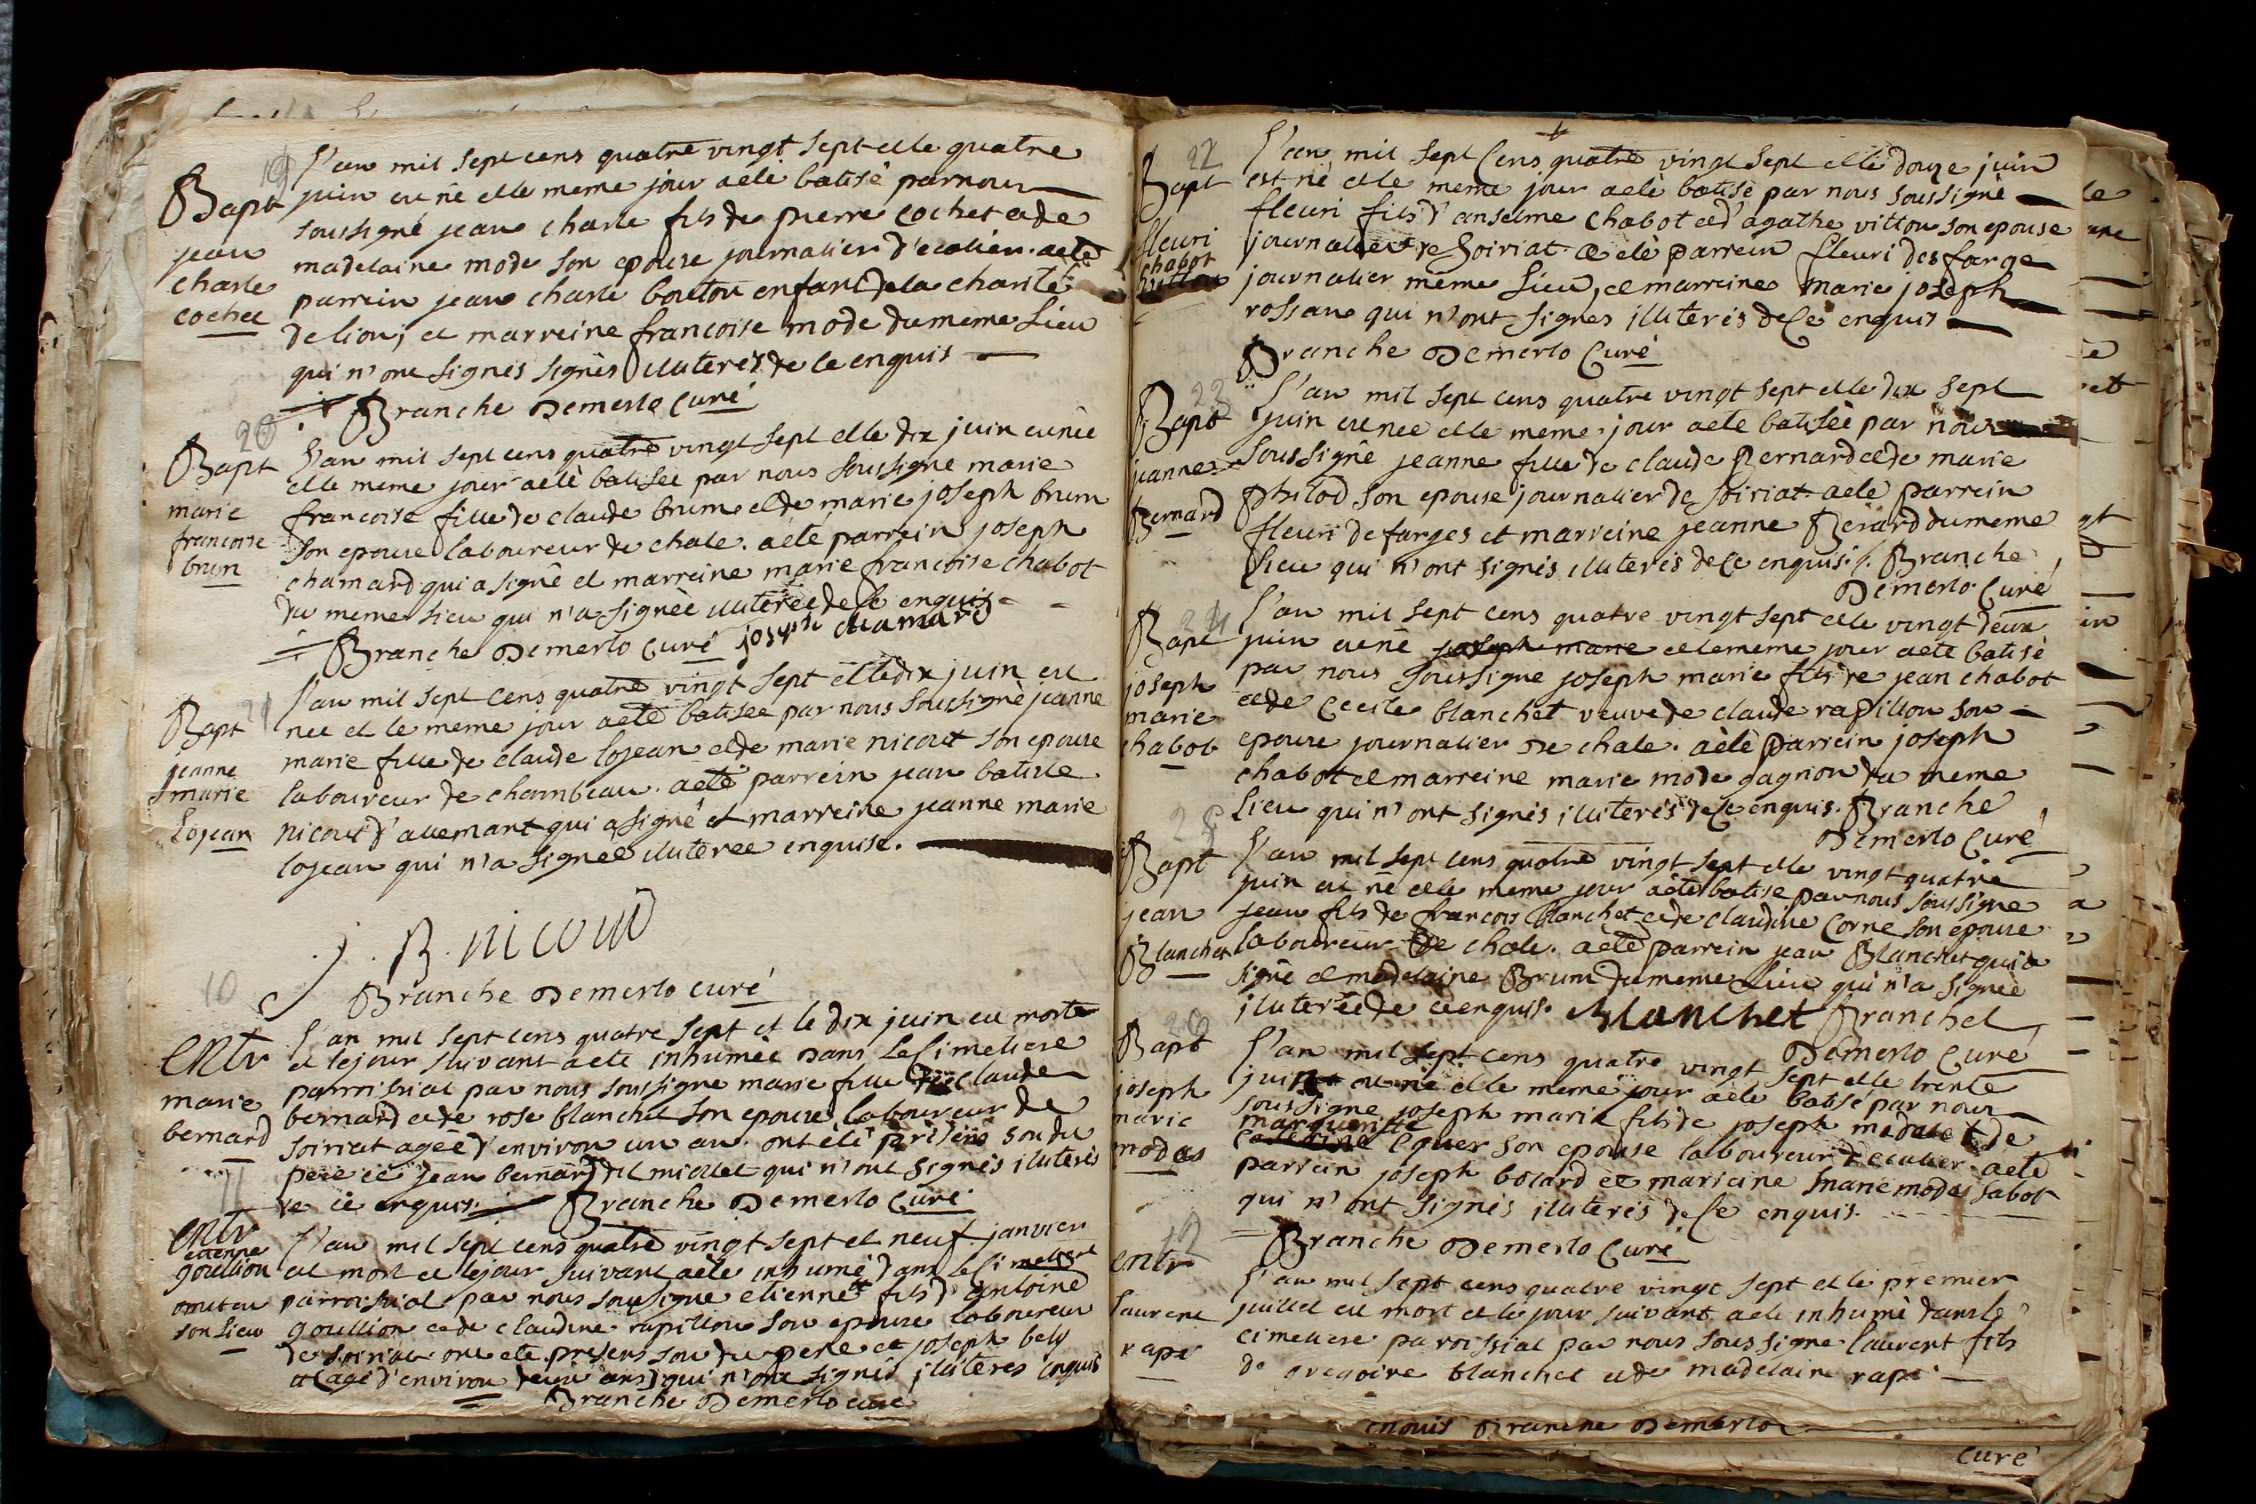 19
Bapt
jean
charle
cochet
L'an mil sept cens quatre vingt sept et le quatre
juin est né et le meme jour a eté batisé par nous
soussigné jean charle fils de pierre cochet et de
madelaine mode son epouse journalier d'ecolieu. a eté
parrein jean charle bouton enfant de la charité
de lion, et marreine francoise mode du meme lieu
qui n'ont signés signés illiterés de ce enquis
Branche Demerlo Curé
20
Bapt
marie
francoise
brun
L'an mil sept cens quatre vingt sept et le dix juin est née
et le meme jour a eté batisée par nous soussigné marie
francoise fille de claude brun et de marie joseph brun
son epouse laboureur de chale. a eté parrein joseph
chamard qui a signé et marreine marie francoise chabot
du meme lieu qui n'a signée illiterée de ce enquis
Branche Demerlo Curé joseph chamard
21
Bapt
jeanne
marie
Lojean
L'an mil sept cens quatre vingt sept et le dix juin est
née et le meme jour a eté batisée par nous soussigné jeanne
marie fille de claude lojean et de marie nicout son epouse
laboureur de chambeau. a eté parrein jean batiste
nicout d'allemant qui a signé et marreine jeanne marie
lojean qui n'a signée illiterée enquise.
J. B. nicoud
Branche Demerlo curé
10
Entr
marie
bernard
L'an mil sept cens quatre sept et le dix juin est morte
et le jour suivant a eté inhumée dans le cimetiere
parroissial par nous soussigné marie fille de claude
bernard et de rose blanchet son epouse laboureur de
soiriat agée d'environ un an. ont été présens son dit
pere et jean bernard dit miollet qui n'ont signés illiterés
de ce enquis. Branche Demerlo Curé
11
Entr
etienne
goullion
omis en
son lieu
L'an mil sept cens quatre vingt sept et neuf janvier
est mort et le jour suivant a eté inhumé dans le cimetiere
parroissial par nous soussigné etienne fils d'antoine
goullion et de claudine rapillon son epouse laboureur
de soiriat ont eté presens son dit pere et joseph bely
et (agé d'environ deux ans) qui n'ont signés illiterés enquis
Branche Demerlo curé
22
Bapt
fleuri
chabot
L'an mil sept Cens quatre vingt sept et le douze juin
est né et le meme jour a eté batisé par nous soussigné
fleuri fils d'anselme chabot et d'agathe vitton son epouse
journalier de Soiriat a eté parrein fleuri desfarge
journalier meme lieu, et marreine marie joseph
rossane qui n'ont signés illiterés de ce enquis
Branche Demerlo Curé
23
Bapt
jeanne
Bernard
L'an mil sept cens quatre vingt sept et le dix sept
juin est née et le meme jour a eté batisée par nous
soussigné jeanne fille de claude Bernard et de marie
Philod son epouse journalier de soiriat a eté parrein
fleuri defarges et marreine jeanne Berard du meme
lieu qui n'ont signés illiterés de ce enquis. Branche
Demerlo Curé
24
Bapt
joseph
marie
chabot
L'an mil sept cens quatre vingt sept et le vingt deux
juin est né joseph marie et le meme jour a eté batisé
par nous soussigné joseph marie fils de jean chabot
et de Cecile blanchet veuve de claude rapillon son
epouse journalier de chale. a eté parrein joseph
chabot et marreine marie mode gagnion du meme
lieu qui n'ont signés illiterés de ce enquis. Branche
Demerlo Curé
25
Bapt
jean
Blanchet
L'an mil sept cens quatre vingt sept et le vingt quatre
juin est né et le meme jour a eté batisé par nous soussigné
jean fils de francois Blanchet et de claudine Corne son epouse
laboureur de chale. a eté parrein jean Blanchet qui a
signé et madelaine Brun du meme lieu qui n'a signée
illiterée de ce enquis. Blanchet Branche
Demerlo Curé
26
Bapt
joseph
marie
modas
L'an mil sept cens quatre vingt sept et le trente
juin est né et le meme jour a eté batisé par nous
soussigné joseph marie fils de joseph modas et de
marguerite
caterine equer son epouse laboureur d'ecolieu. a eté
parrein joseph bolard et marreine marie modas sabot
qui n'ont signés illiterés de ce enquis.
Branche Demerlo Curé
12
Entr
laurent
rape
L'an mil sept cens quatre vingt sept et le premier
juillet est mort et le jour suivant a eté inhumé dans le
cimetiere paroissial par nous soussigné laurent fils
de gregoire blanchet et de madelaine rape
enquis Branche Demerlo
curé